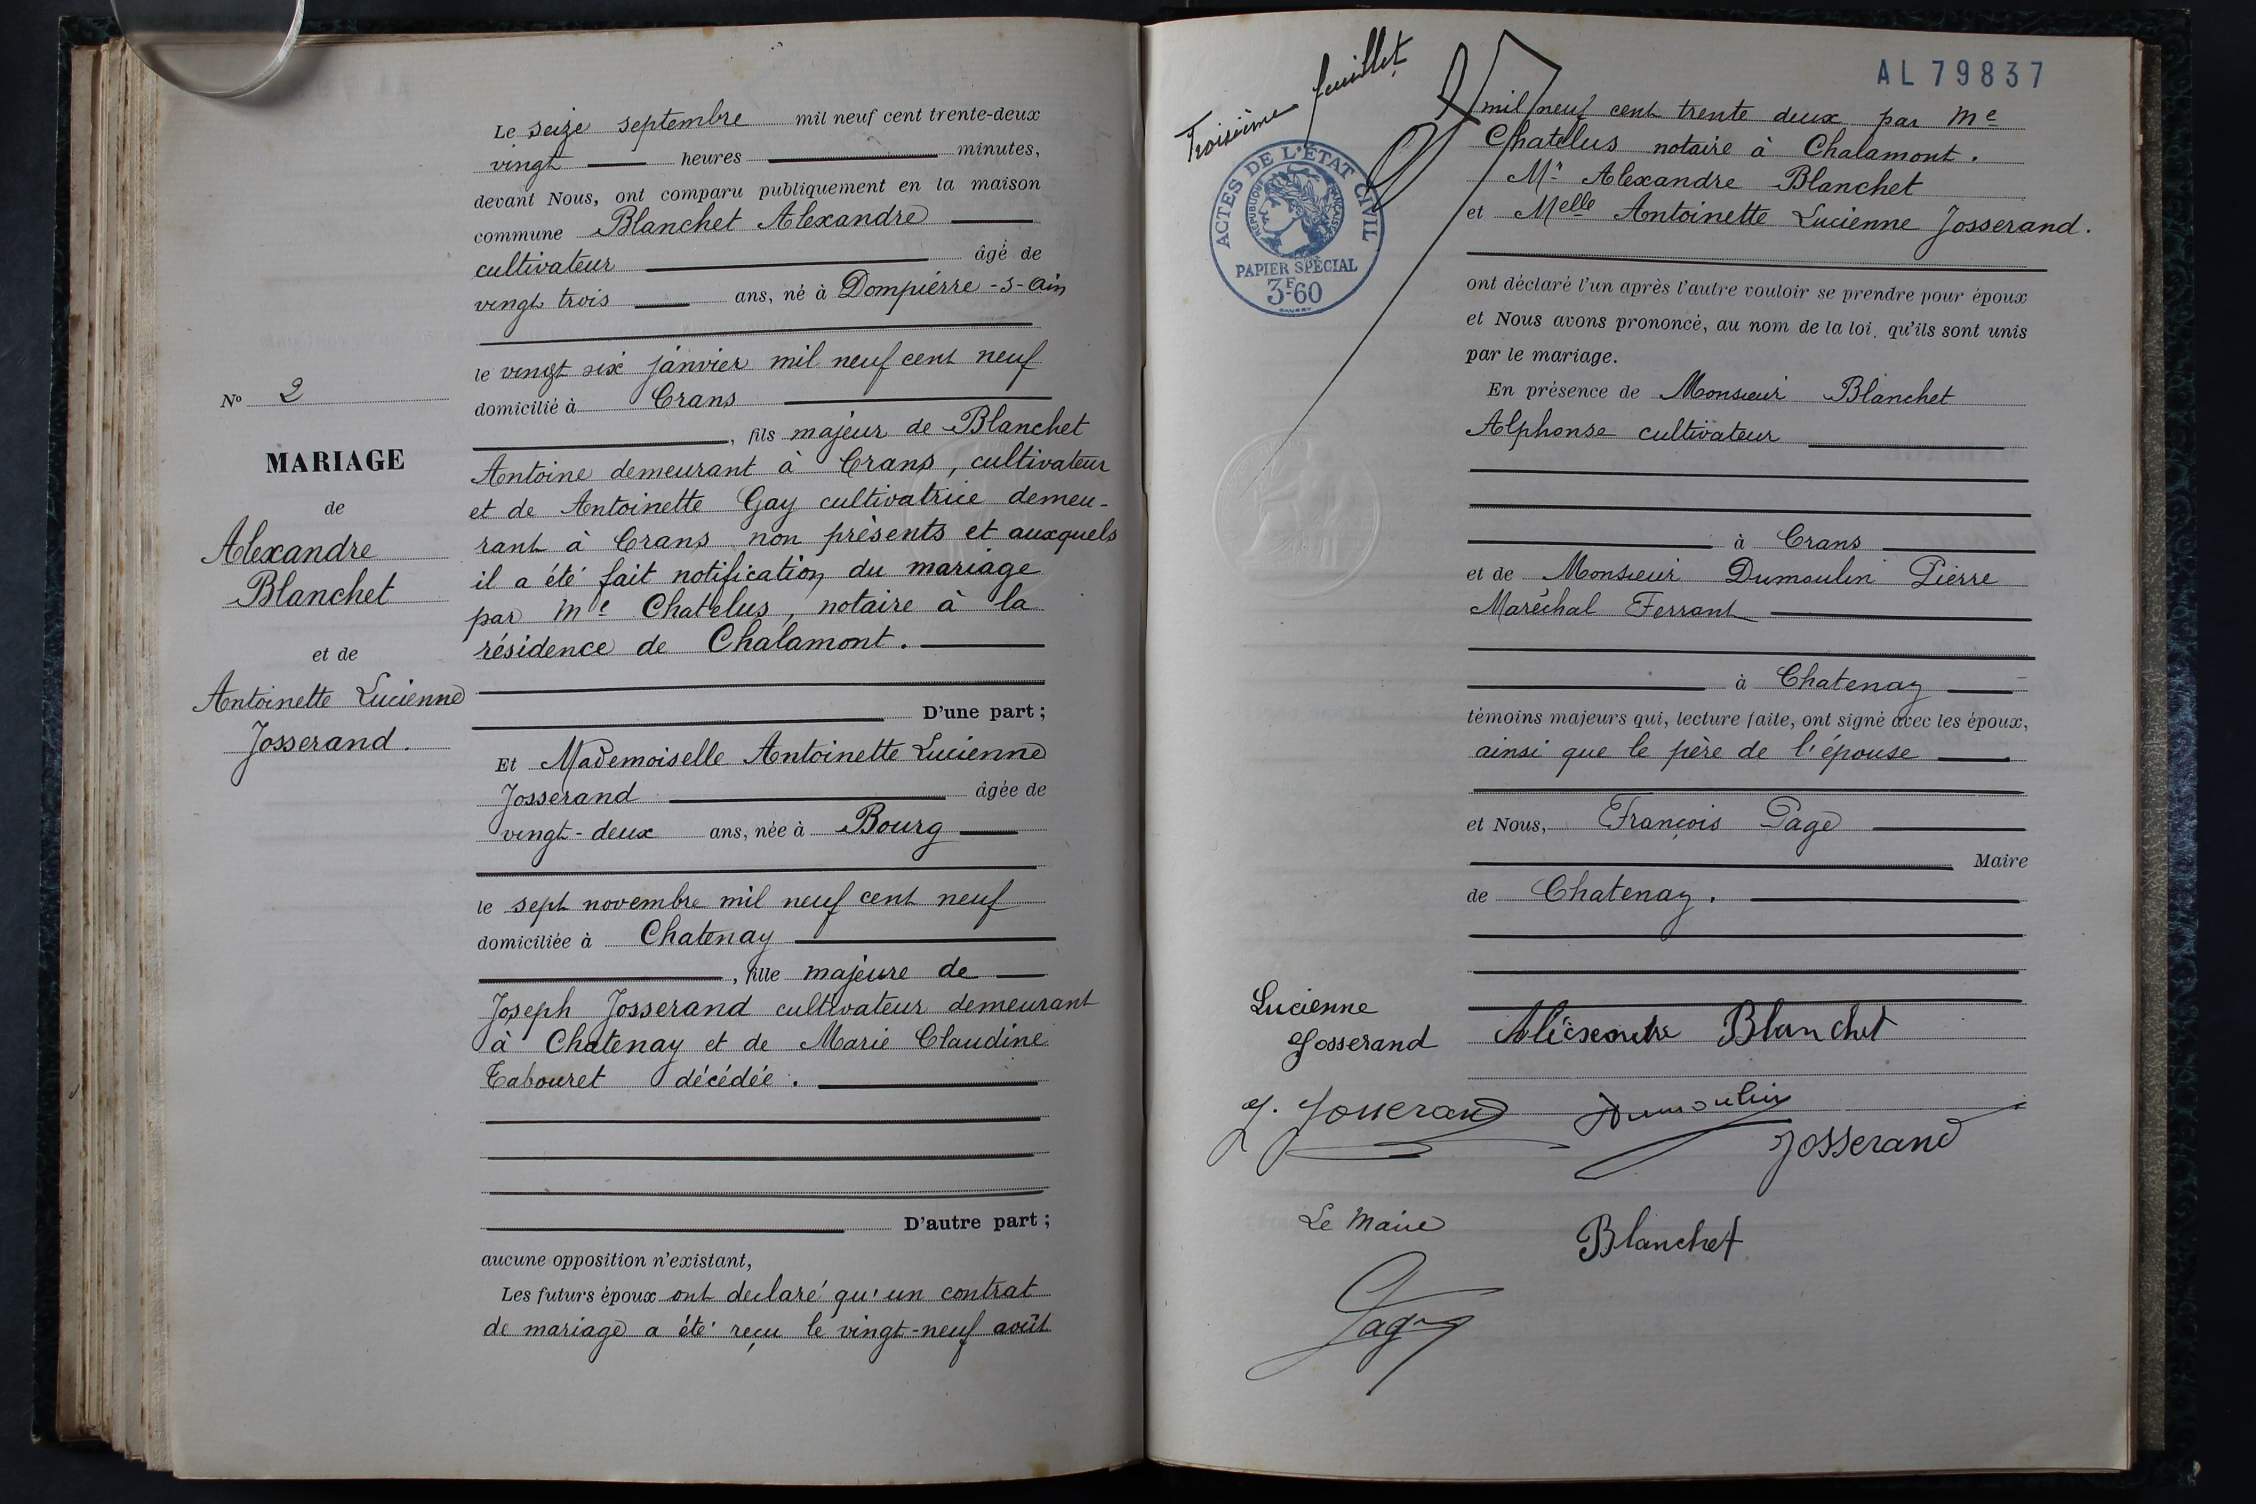 Le seize septembre mil neuf cent trente-deux
vingt heures minutes,
devant Nous, ont comparu publiquement en la maison
commune Blanchet Alexandre
cultivateur âgé de
vingt trois ans, né à Dompierre-s-Ain
le vingt six janvier mil neuf cent neuf
domicilié à Crans
, fils majeur de Blanchet
Antoine demeurant à Crans, cultivateur
et de Antoinette Gay cultivatrice demeu-
rant à Crans non présents et auxquels
il a été fait notification du mariage
par Me Chatelus, notaire à la
résidence de Chalamont.
D'une part ;
Et Mademoiselle Antoinette Lucienne
Josserand âgée de
vingt-deux ans, née à Bourg
le sept novembre mil neuf cent neuf
domiciliée à Chatenay
, fille majeure de
Joseph Josserand cultivateur demeurant
à Chatenay et de Marie Claudine
Tabouret décédée.
D'autre part ;
aucune opposition n'existant,
Les futurs époux ont declaré qu'un contrat
de mariage a été reçu le vingt-neuf août
No 2
MARIAGE
de
Alexandre
Blanchet
et de
Antoinette Lucienne
Josserand.
Troisième feuillet
ACTES DE L'ÉTAT CIVIL
RÉPUBLIQUE FRANÇAISE
PAPIER SPÉCIAL
3F60
AL 79837
mil neuf cent trente deux par Me
Chatelus notaire à Chalamont.
Mr Alexandre Blanchet
et Melle Antoinette Lucienne Josserand.
ont déclaré l'un après l'autre vouloir se prendre pour époux
et Nous avons prononcé, au nom de la loi, qu'ils sont unis
par le mariage.
En présence de Monsieur Blanchet
Alphonse cultivateur
à Crans
et de Monsieur Dumoulin Pierre
Maréchal Ferrant
à Chatenay
témoins majeurs qui, lecture faite, ont signé avec les époux,
ainsi que le père de l'épouse
et Nous, François Page
Maire
de Chatenay.
Lucienne
Josserand
Alexandre Blanchet
J. Josserand
Dumoulin
Josserand
Le Maire
Blanchet
Page